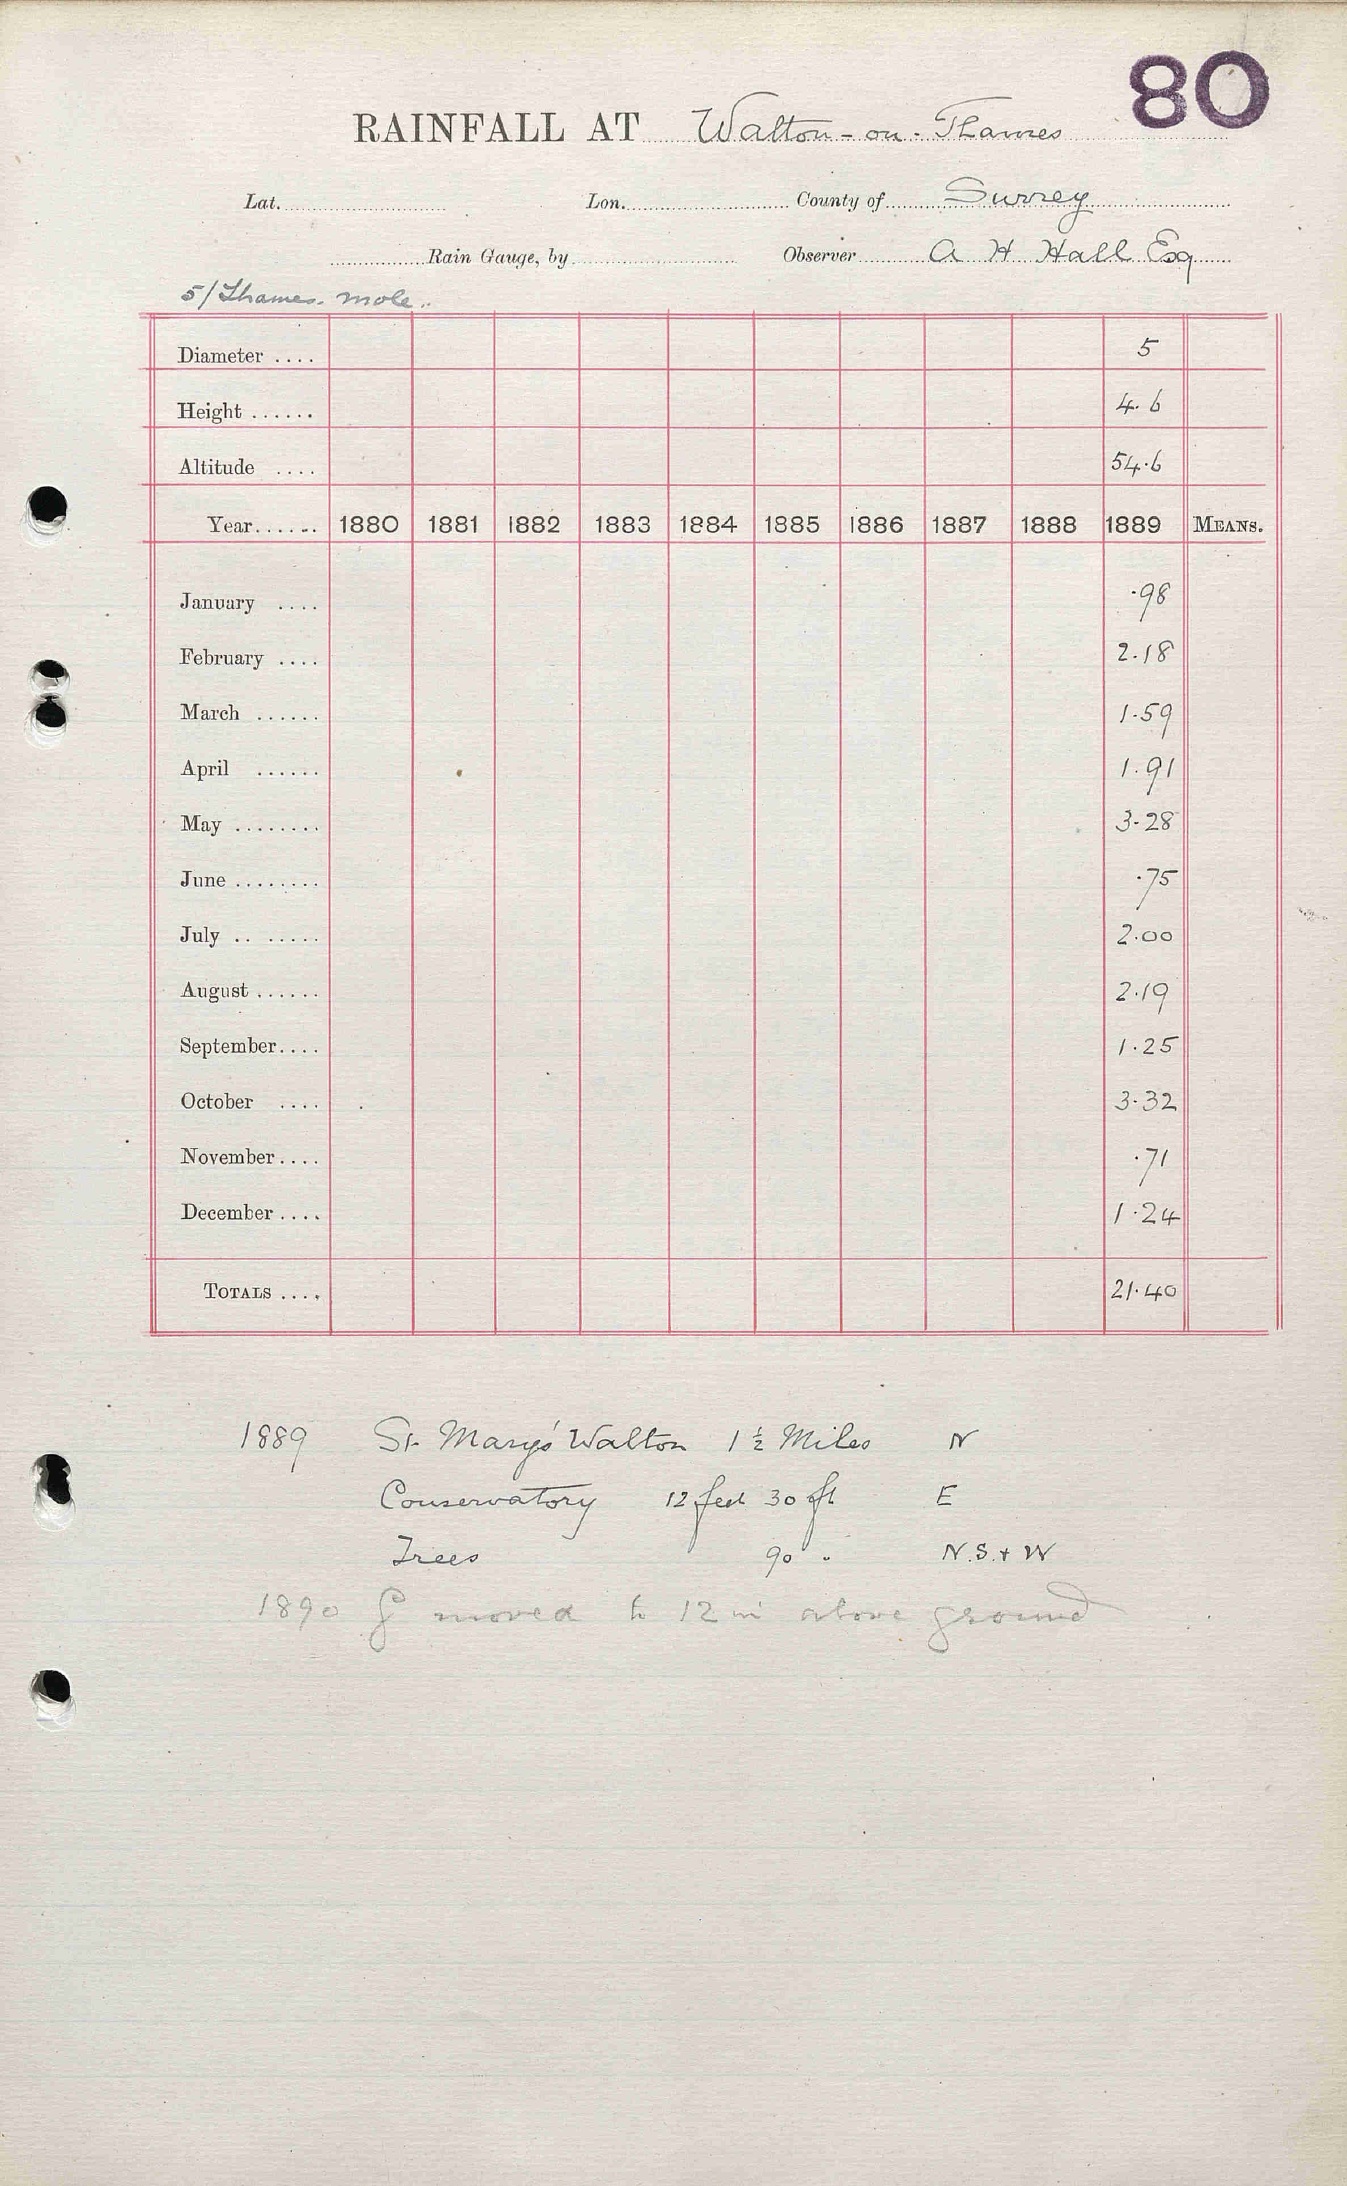 80
RAINFALL AT Walton-on-Thames
Lat. Lon. County of Surrey
Rain Gauge, by Observer A H Hall Esq
5/Thames. Mole.
Diameter .... 5
Height ...... 4.6
Altitude .... 54.6
Year...... 1880 1881 1882 1883 1884 1885 1886 1887 1888 1889 MEANS.
January .... .98
February .... 2.18
March ...... 1.59
April ...... 1.91
May ........ 3.28
June ........ .75
July .. ..... 2.00
August ...... 2.19
September.... 1.25
October .... 3.32
November.... .71
December .... 1.24
TOTALS .... 21.40
1889 St Mary's Walton 1½ Miles N
Conservatory 12 feet 30 ft E
Trees 90 " N.S. + W
1890 G moved to 12 in above ground